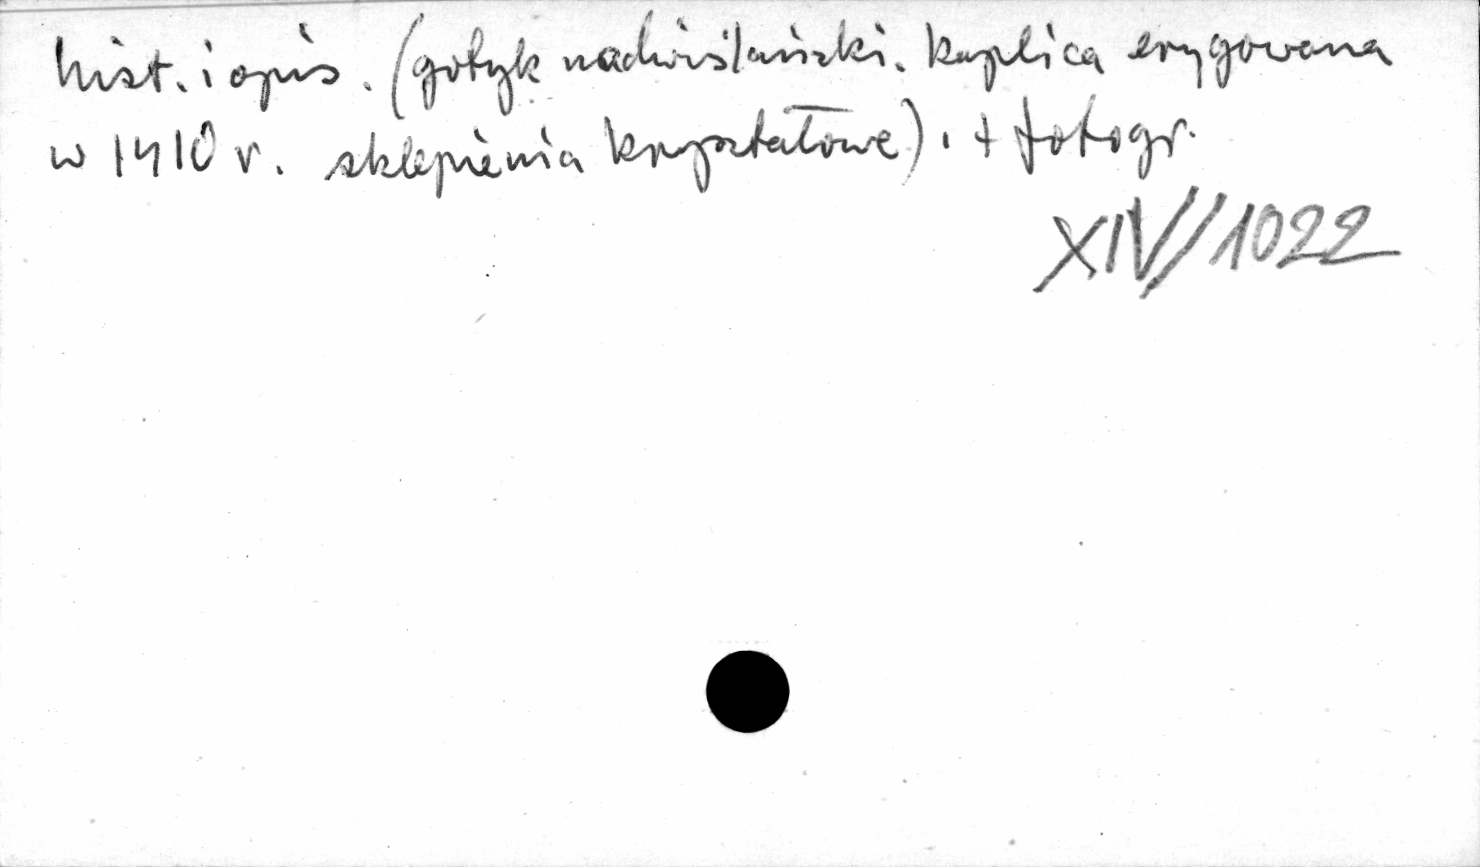 hist. i opis. (gotyk nadwiślański. Kaplica erygowana
w 1410 r. sklepienia kryształowe). + fotogr.
XIV/1022